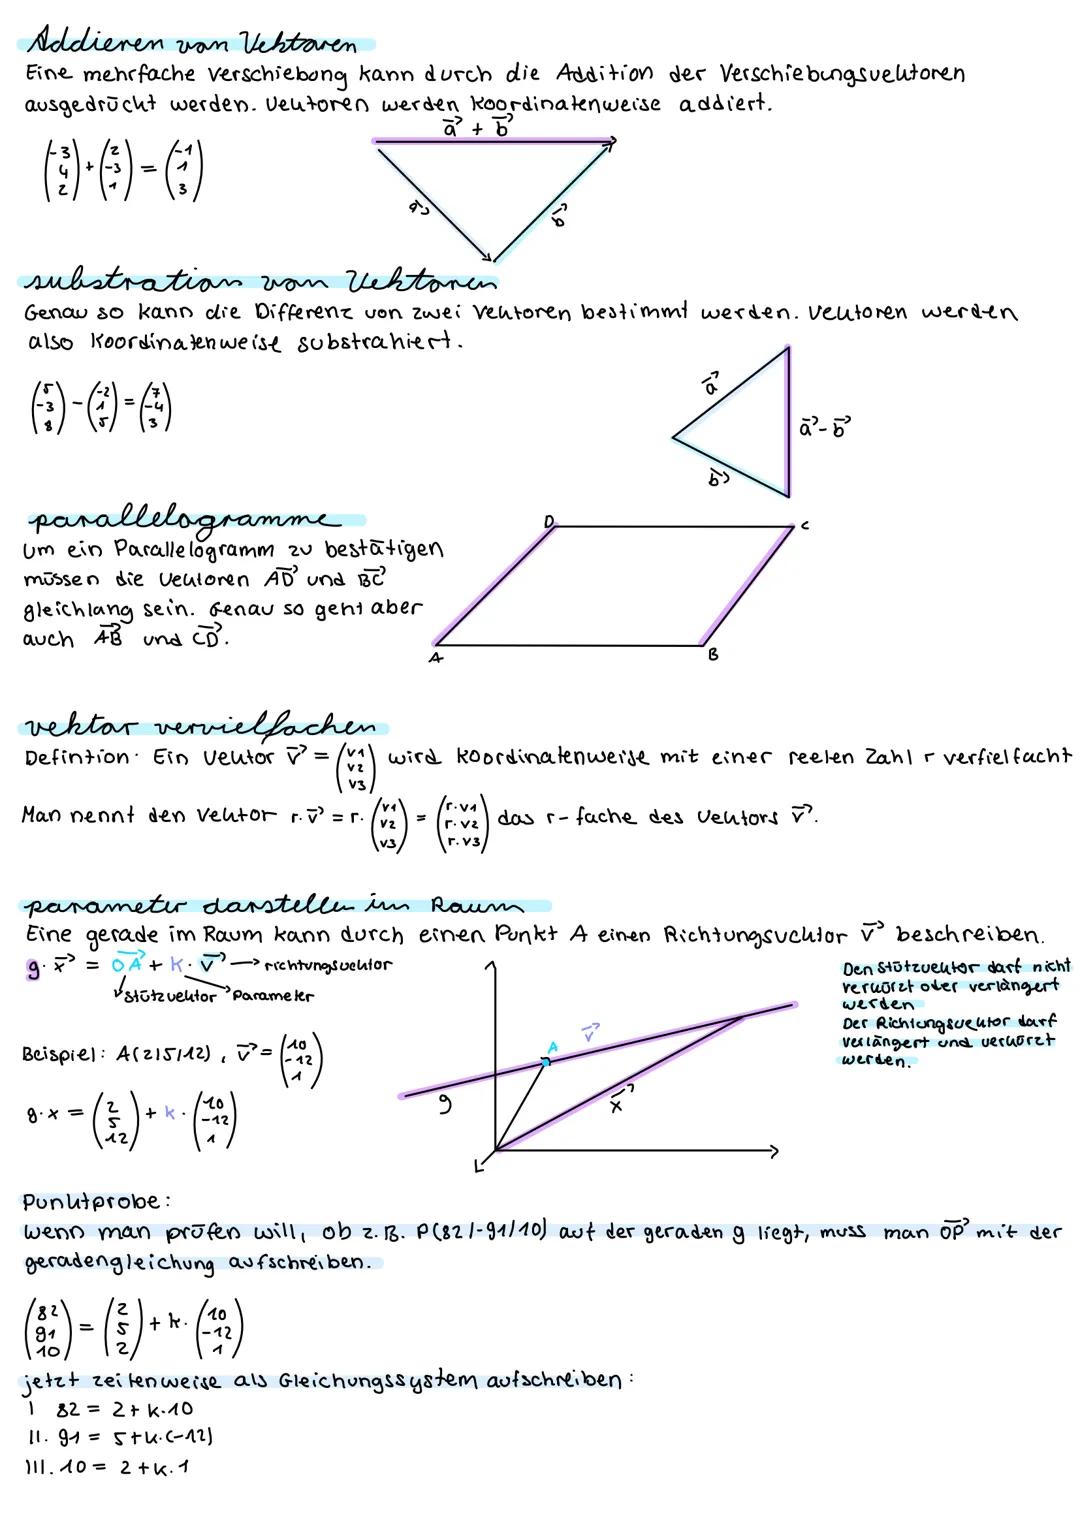 Addieren von Vektoren
Eine mehrfache Verschiebung kann durch die Addition der Verschiebungsvektoren
ausgedrückt werden. Vektoren werden koordinatenweise addiert.
a⃗ + b⃗
(-3 4 2) + (2 -3 1) = (-1 1 3)
a⃗ b⃗
substration von Vektoren
Genau so kann die Differenz von zwei Vektoren bestimmt werden. Vektoren werden
also koordinatenweise substrahiert.
(5 -3 8) - (-2 1 5) = (7 -4 3)
a⃗
a⃗ - b⃗
b⃗
parallelogramme
Um ein Parallelogramm zu bestätigen
müssen die Vektoren AD⃗ und BC⃗
gleichlang sein. Genau so geht aber
auch AB⃗ und CD⃗.
D C
A B
vektor vervielfachen
Defintion: Ein Vektor v⃗ = (v1 v2 v3) wird koordinatenweise mit einer reelen Zahl r verfielfacht
Man nennt den Vektor r·v⃗ = r·(v1 v2 v3) = (r·v1 r·v2 r·v3) das r-fache des Vektors v⃗.
parameter darstellen im Raum
Eine gerade im Raum kann durch einen Punkt A einen Richtungsvektor v⃗ beschreiben.
g: x⃗ = OA⃗ + k· v⃗ → richtungsvektor
Stützvektor Parameter
Den Stützvektor darf nicht
verkürzt oder verlängert
werden
Der Richtungsvektor darf
verlängert und verkürzt
werden.
Beispiel: A(2|5|12), v⃗ = (10 -12 1)
g: x = (2 5 12) + k · (10 -12 1)
A v⃗
g x⃗
Punktprobe:
wenn man prüfen will, ob z.B. P(82/-91/10) auf der geraden g liegt, muss man OP⃗ mit der
geradengleichung aufschreiben.
(82 91 10) = (2 5 2) + k · (10 -12 1)
jetzt zeilenweise als Gleichungssystem aufschreiben:
I 82 = 2 + k·10
II. 91 = 5 + k·(-12)
III. 10 = 2 + k·1